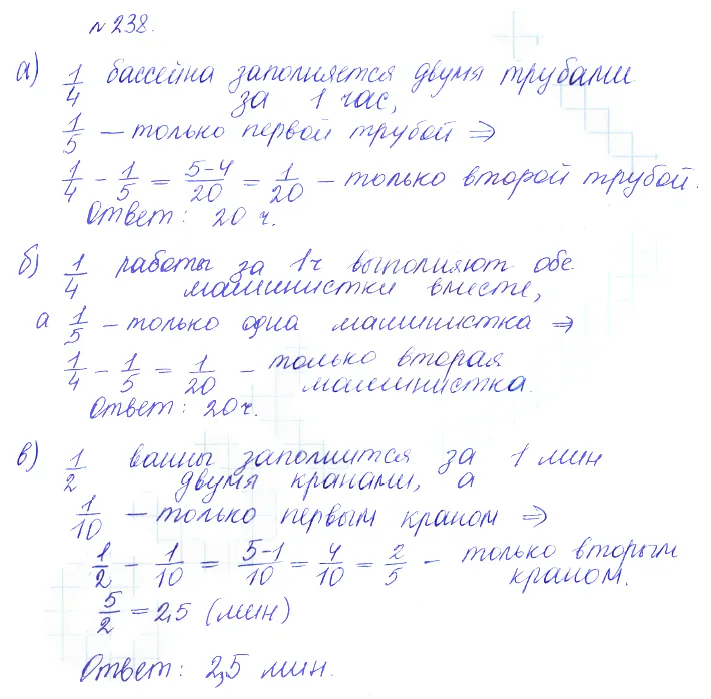 №238.
а) 1/4 бассейна заполняется двумя трубами
за 1 час,
1/5 – только первой трубой ⇒
1/4 – 1/5 = 5-4/20 = 1/20 – только второй трубой.
Ответ: 20 ч.
б) 1/4 работы за 1ч выполняют обе
машинистки вместе,
а 1/5 – только одна машинистка ⇒
1/4 – 1/5 = 1/20 – только вторая
машинистка.
Ответ: 20ч.
в) 1/2 ванны заполнится за 1 мин
двумя кранами, а
1/10 – только первым краном ⇒
1/2 – 1/10 = 5-1/10 = 4/10 = 2/5 – только вторым
краном.
5/2 = 2,5 (мин)
Ответ: 2,5 мин.